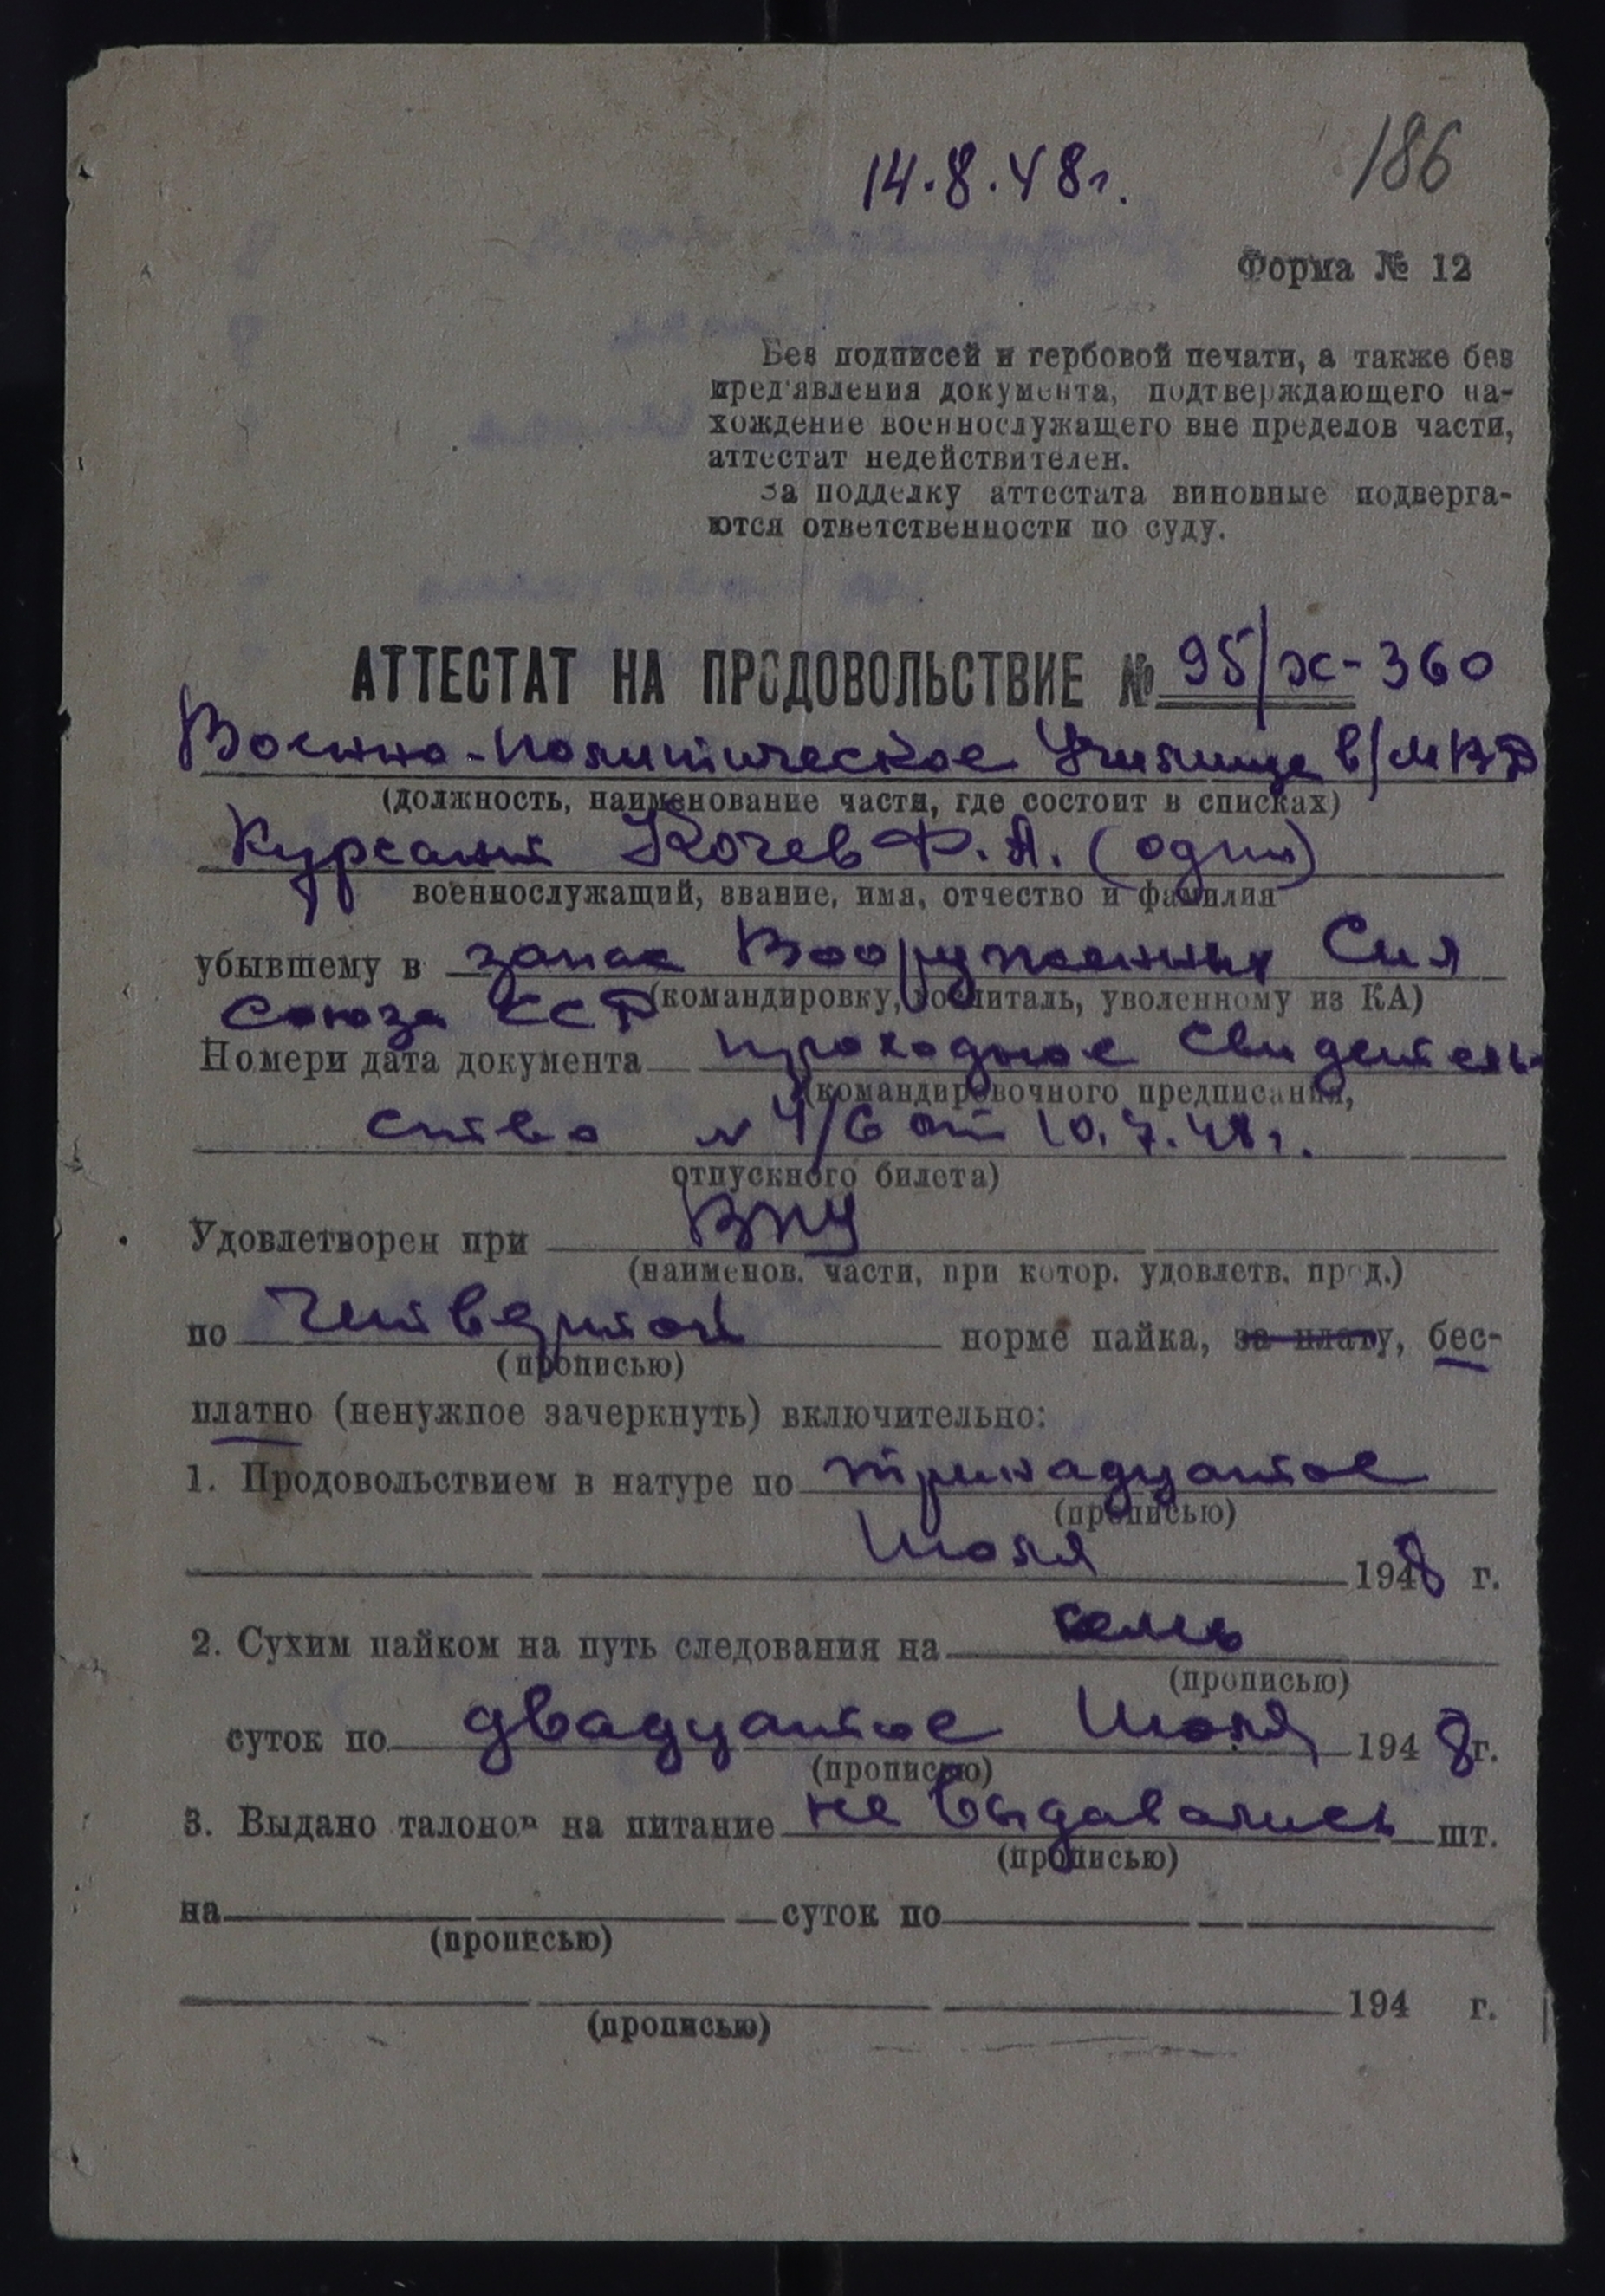 14.8.48г.
186
Форма № 12
Без подписей и гербовой печати, а также без
пред'явления документа, подтверждающего на-
хождение военнослужащего вне пределов части,
аттестат недействителен.
За подделку аттестата виновные подверга-
ются ответственности по суду.
АТТЕСТАТ НА ПРОДОВОЛЬСТВИЕ № 95/ж-360
Военно-Политическое Училище в/МВД
(должность, наименование части, где состоит в списках)
Курсант Кочев Ф.А. (один)
военнослужащий, звание, имя, отчество и фамилия
убывшему в запас Вооруженных Сил
(командировку, госпиталь, уволенному из КА)
Союза ССР
Номери дата документа проходное Свидетель-
(командировочного предписания,
ство № 4/6 от 10.7.48г.
отпускного билета)
Удовлетворен при ВПУ
(наименов. части, при котор. удовлетв. прод.)
по Читвертой норме пайка, за плату, бес-
(прописью)
платно (ненужное зачеркнуть) включительно:
1. Продовольствием в натуре по тринадцатое
(прописью)
Июля 1948 г.
2. Сухим пайком на путь следования на семь
(прописью)
суток по двадцатое Июля 1948 г.
(прописью)
3. Выдано талонов на питание не выдавались шт.
(прописью)
на суток по
(прописью)
194 г.
(прописью)